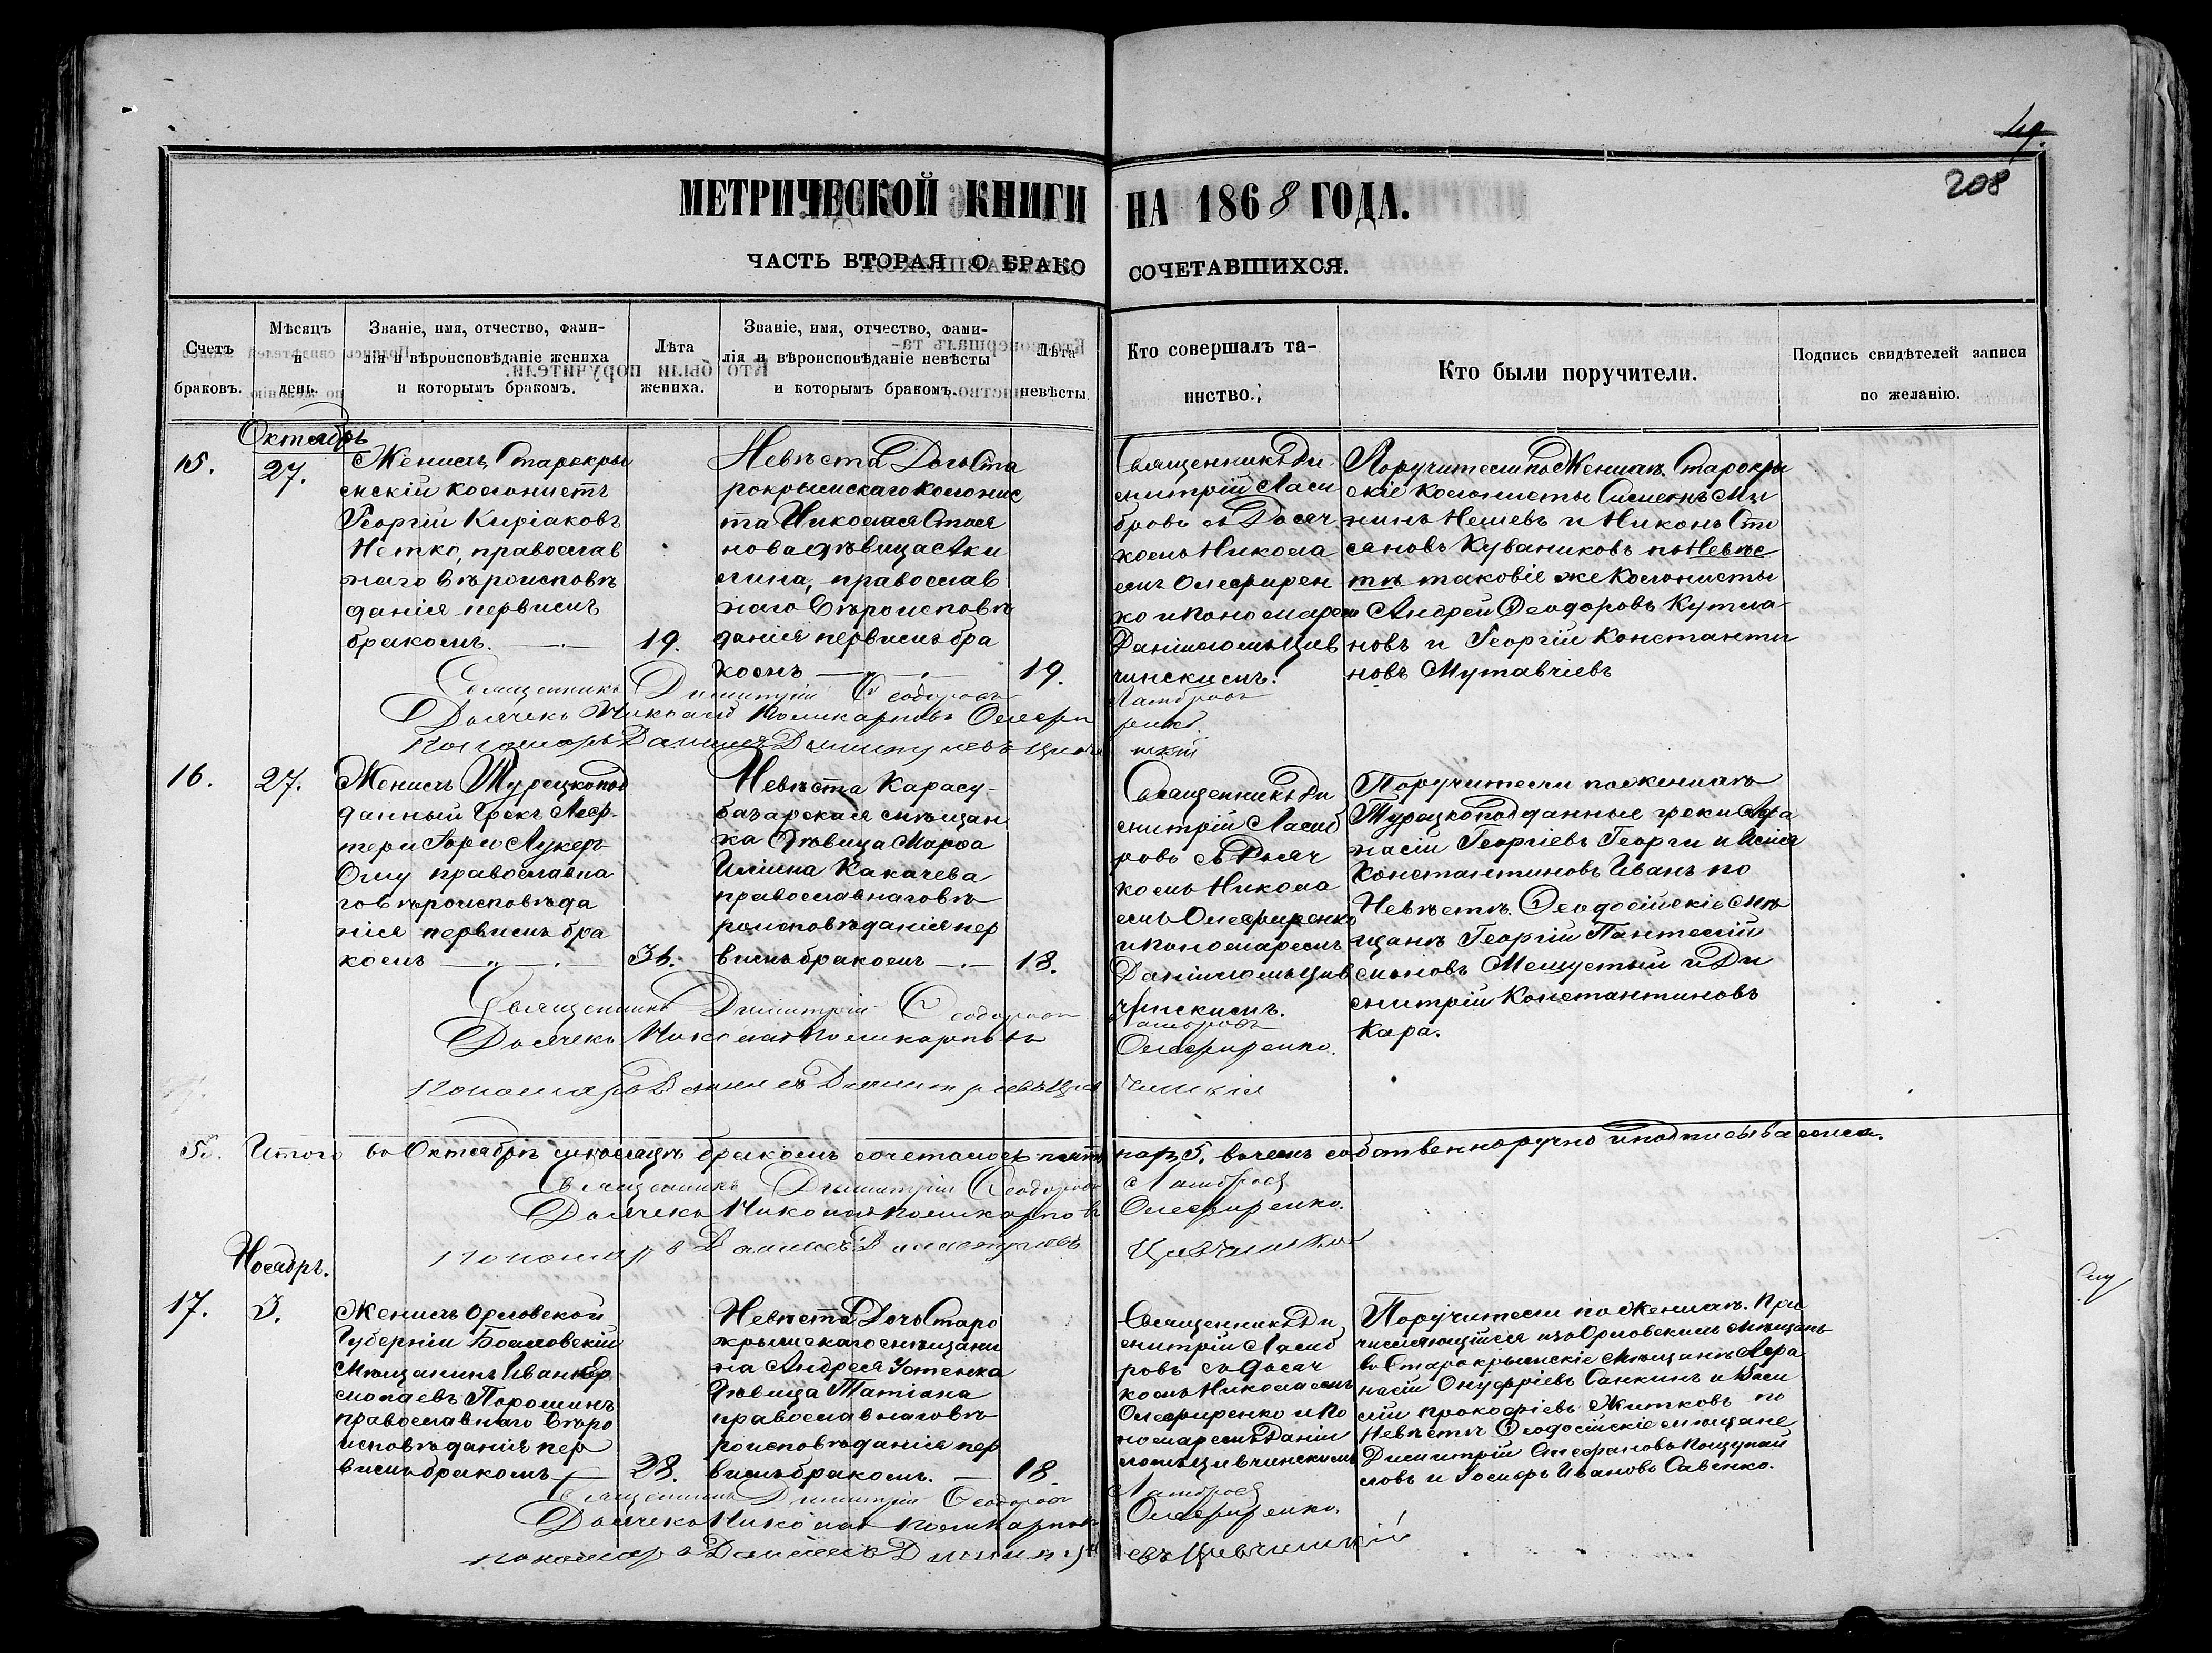 49.
208
МЕТРИЧЕСКОЙ КНИГИ НА 1868 ГОДА.
ЧАСТЬ ВТОРАЯ О БРАКОСОЧЕТАВШИХСЯ.
Счетъ
браковъ.
Мѣсяцъ
и
день.
Званіе, имя, отчество, фами-
лія и вѣроисповѣданіе жениха
и которымъ бракомъ.
Лѣта
жениха.
Званіе, имя, отчество, фами-
лія и вѣроисповѣданіе невѣсты
и которымъ бракомъ.
Лѣта
невѣсты.
Кто совершалъ та-
инство.
Кто были поручители.
Подпись свидѣтелей записи
по желанію.
Октябрь
15.
27.
Женихъ, Старокры
мскій колонистъ
Георгій Киріаковъ
Нетко, православ
наго вѣроисповѣ
данія первымъ
бракомъ.
19.
Невѣста Дочь Ста
рокрымскаго колонис
та Николая Стоя
нова дѣвица Аки
лина, православ
наго вѣроисповѣ
данія первымъ бра
комъ
19.
Священникъ Ди
митрій Ламб
ровъ съ Дьяч
комъ Никола
емъ Олефирен
ко и Пономаремъ
Даніиломъ Цив
чинскимъ.
Поручители по Женихѣ. Старокры
скіе колонисты Симеонъ Ми
нинъ Нешевъ и Никонъ Сто
яновъ Куваниковъ по Невѣс
тѣ таковіе же Колонисты
Андрей Ѳеодоровъ Кутма-
новъ и Георгій Константи
новъ Мутавчіевъ
Священникъ Димитрій Ѳеодоровъ Ламбровъ
Дьячекъ Николай Поликарповъ Олефиренко.
Пономарь Даніилъ Димитріевъ
16.
27.
Женихъ Турецкопод
данный Грекъ Леф-
тери Гори Лукеръ
Оглу православна
го вѣроисповѣда
нія первымъ бра
комъ
34.
Невѣста Карасу-
базарская мѣщан
ка Дѣвица Марѳа
Иліина Какачева
православнаго вѣ
роисповѣданія пер
вымъ бракомъ
18.
Священникъ Ди
митрій Ламб
ровъ съ Дьяч
комъ Никола
емъ Олефиренко
и пономаремъ
Даніиломъ Цив
чинскимъ.
Поручители по женихѣ
Турецкоподданные греки Афа
насій Георгіевъ Георги и Илія
Константиновъ Иванъ по
Невѣстѣ. Ѳеодосійскіе мѣ
щане Георгій Пантелей
моновъ Мещустый и Ди
митрій Константиновъ
Кара.
Священникъ Димитрій Ѳеодоровъ Ламбровъ
Дьячекъ Николай Поликарповъ Олефиренко.
Пономарь Даніилъ Димитріевъ Цивчинскій
5. Итого во Октябрѣ мѣсяцѣ бракомъ сочеталось пять паръ 5. въ чемъ собственноручно и подписываемся.
Священникъ Димитрій Ѳеодоровъ Ламбровъ
Дьячекъ Николай Поликарповъ Олефиренко.
Пономарь Даніилъ Димитріевъ Цивчинскій
Ноябрь.
17.
3.
Женихъ Орловской
Губерніи Болховскій
Мѣщанинъ Иванъ Ер
молаевъ Порошинъ
православнаго вѣро
исповѣданія пер
вымъ бракомъ
28.
Невѣста Дочь Старо
крымскаго мѣщани
на Андрея Устенка
Дѣвица Татіана
православнаго вѣ
роисповѣданія пер
вымъ бракомъ.
18.
Священникъ Ди
митрій Ламб
ровъ съ Дьяч
комъ Николаемъ
Олефиренко и По
номаремъ Даніи
ломъ Цивчинскимъ
Поручители по Женихѣ. При
числяющіеся изъ Орловскихъ мѣщанъ
въ Старокрымскіе мѣщане Афа
насій Онуфріевъ Санкинъ и Васи
лій Прокофіевъ Житковъ по
Невѣстѣ Ѳеодосійскіе мѣщане
Димитрій Стефановъ Пощупай
ловъ и Іосифъ Ивановъ Савенко.
Священникъ Димитрій Ѳеодоровъ Ламбровъ
Дьячекъ Николай Поликарповъ Олефиренко.
Пономарь Даніилъ Димитріевъ Цивчинскій